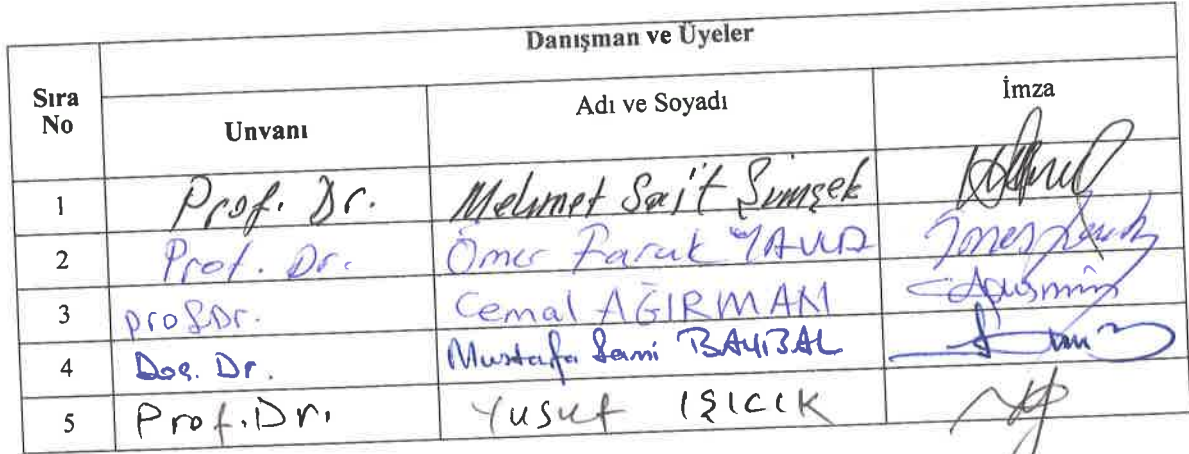 Danışman ve Üyeler
Sıra No Unvanı Adı ve Soyadı İmza
1 Prof. Dr. Mehmet Sait Şimşek
2 Prof. Dr. Ömer Faruk YAVUZ
3 prof.Dr. Cemal AĞIRMAN
4 Doç. Dr. Mustafa Sami BAYBAL
5 Prof.Dr. Yusuf IŞICIK